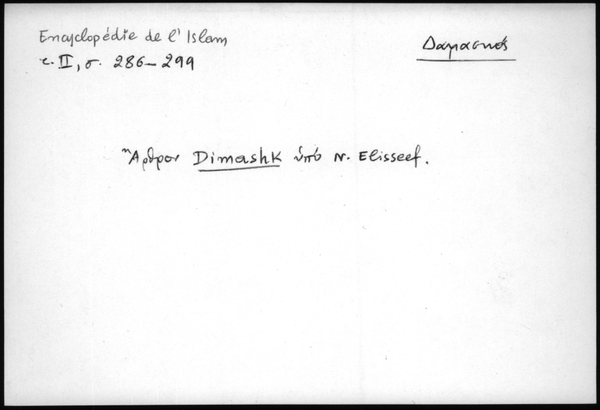 Encyclopédie de l' Islam
τ. II, σ. 286–299
Δαμασκός
Ἄρθρον Dimashk ὑπό N. Elisseef.